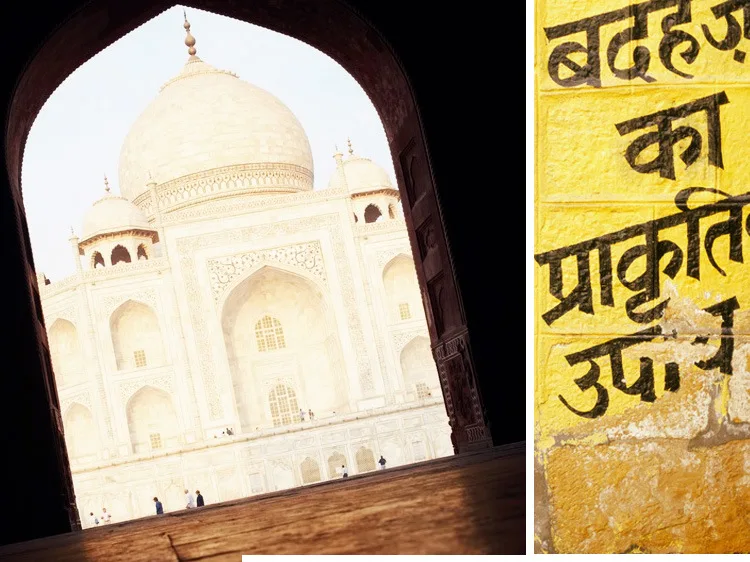 बदहज़
का
प्राकृति
उपाय